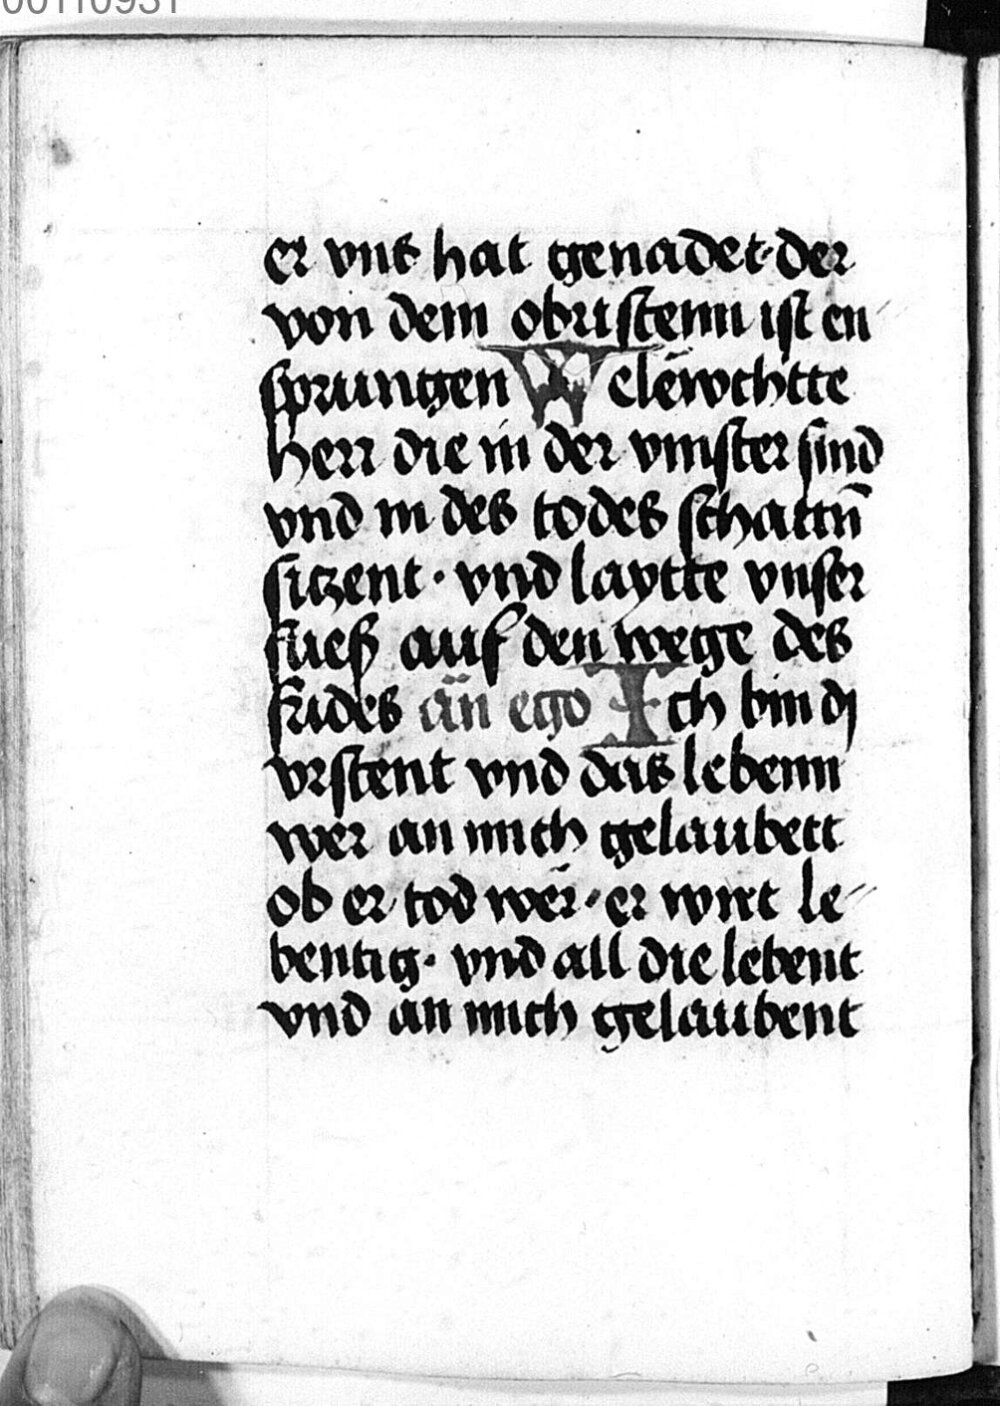 00110931
er vns hat genadet· der
von dem obristenn ist en⸗
sprungen Welëwchtte
herr die in der vinster sind
vnd in des todes schattn̄
sitzent · vnd laytte vnser
fueß auf den wege des
frides än ego Ich bin dj
vrstent vnd das lebenn
wer an mich gelaubett
ob er tod wër · er wirt le⸗
bentig · vnd all die lebent
vnd an mich gelaubent